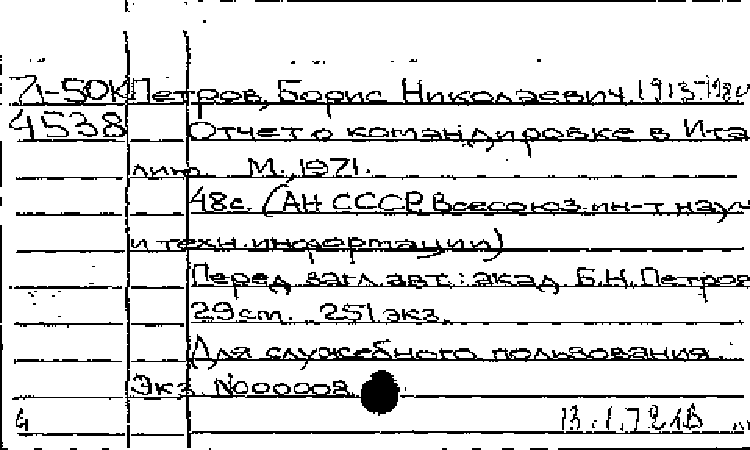 71-50К Петров, Борис Николаевич, 1913-1980
4538 Отчет о командировке в Ита
лию. М., 1971.
48с. (АН СССР. Всесоюз. ин-т науч
и техн. информации)
Перед загл. авт.: акад. Б.Н. Петров
29 см. 251 экз.
Для служебного пользования.
Экз. №000008